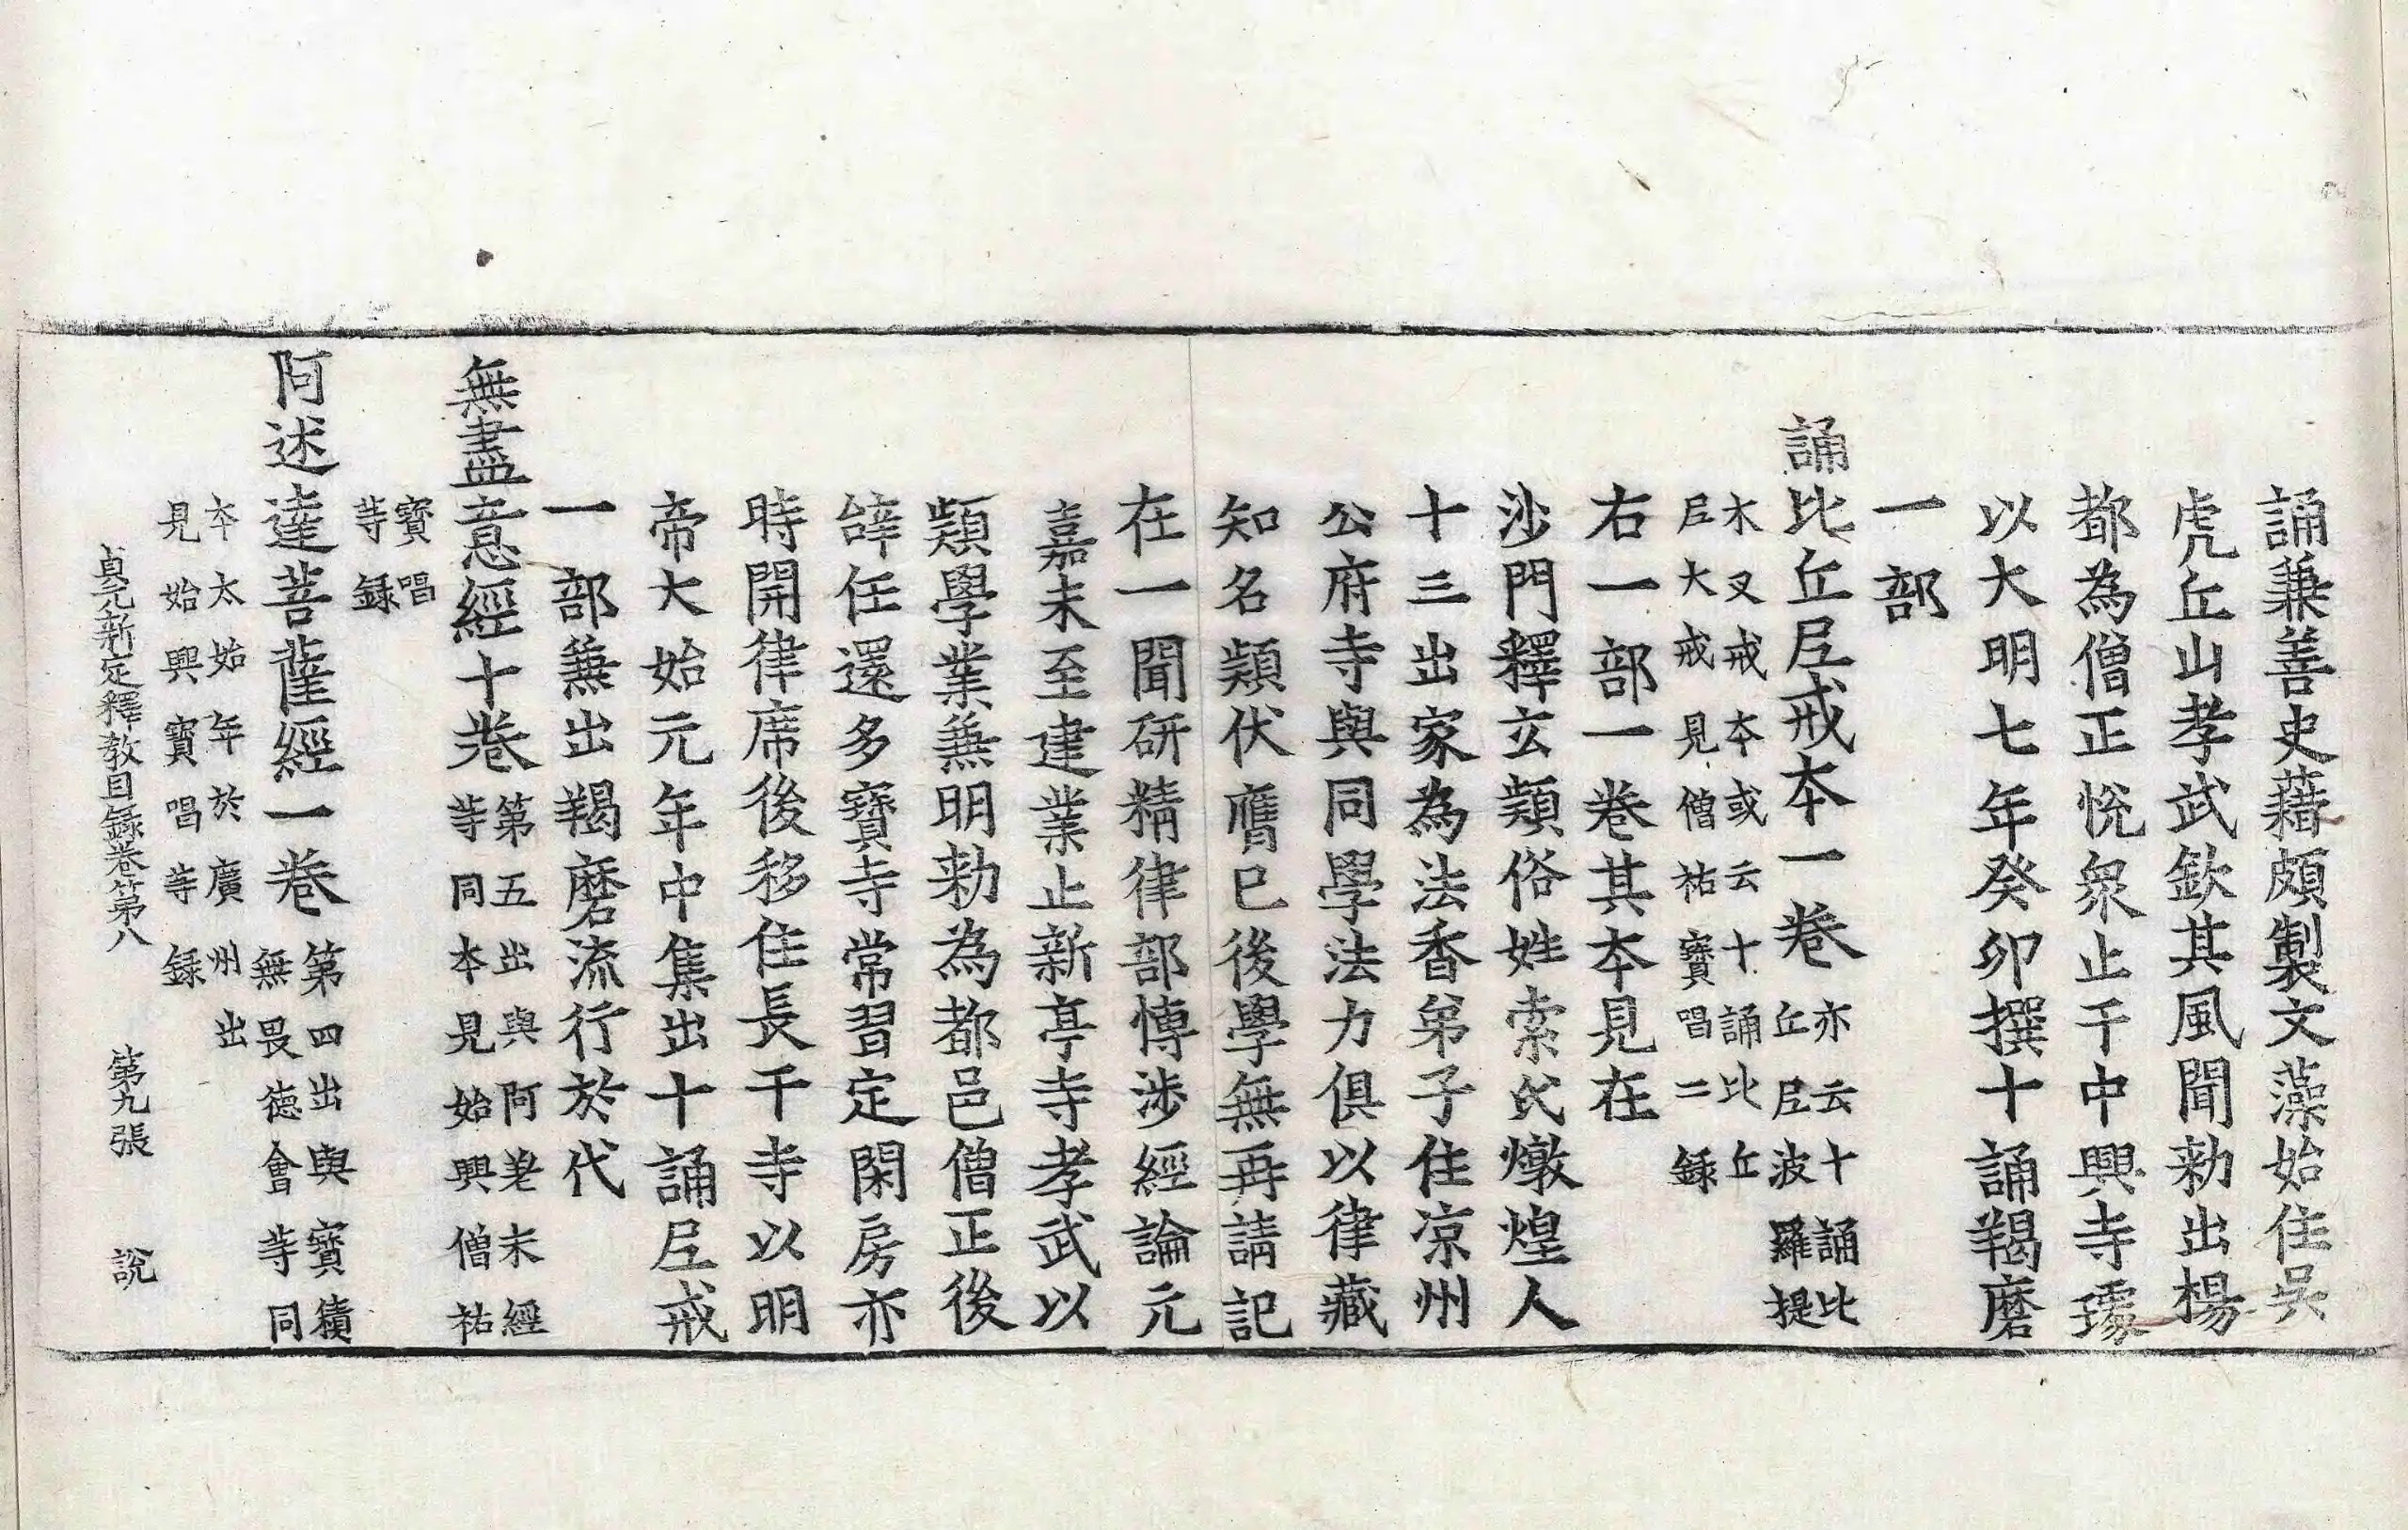 誦兼善史藉頗製文藻始住吳
虎丘山孝武欽其風聞勑出楊
都為僧正悅衆止千中興寺璩
以大明七年癸卯撰十誦羯磨
一部
誦比丘尼戒本一卷
亦云十誦比
丘尼波羅提
木叉戒本或云十誦比丘
尼大戒見僧祐寶唱二錄
右一部一卷其本見在
沙門釋玄顗俗姓索氏燉煌人
十三出家為法香弟子住凉州
公府寺與同學法力俱以律藏
知名顗伏膺已後學無再請記
在一聞研精律部博涉經論元
嘉末至建業止新亭寺孝武以
顗學業兼明勑為都邑僧正後
辝任還多寶寺常習定閑房亦
時開律席後移住長干寺以明
帝大始元年中集出十誦尼戒
一部兼出羯磨流行於代
無盡意經十卷
第五出與阿差末經
等同本見始興僧祐
寶唱
等錄
阿述達菩薩經一卷
第四出與寶積
無畏德會等同
本太始年於廣州出
見始興寶唱等錄
貞元新定釋教目錄卷第八 第九張 說